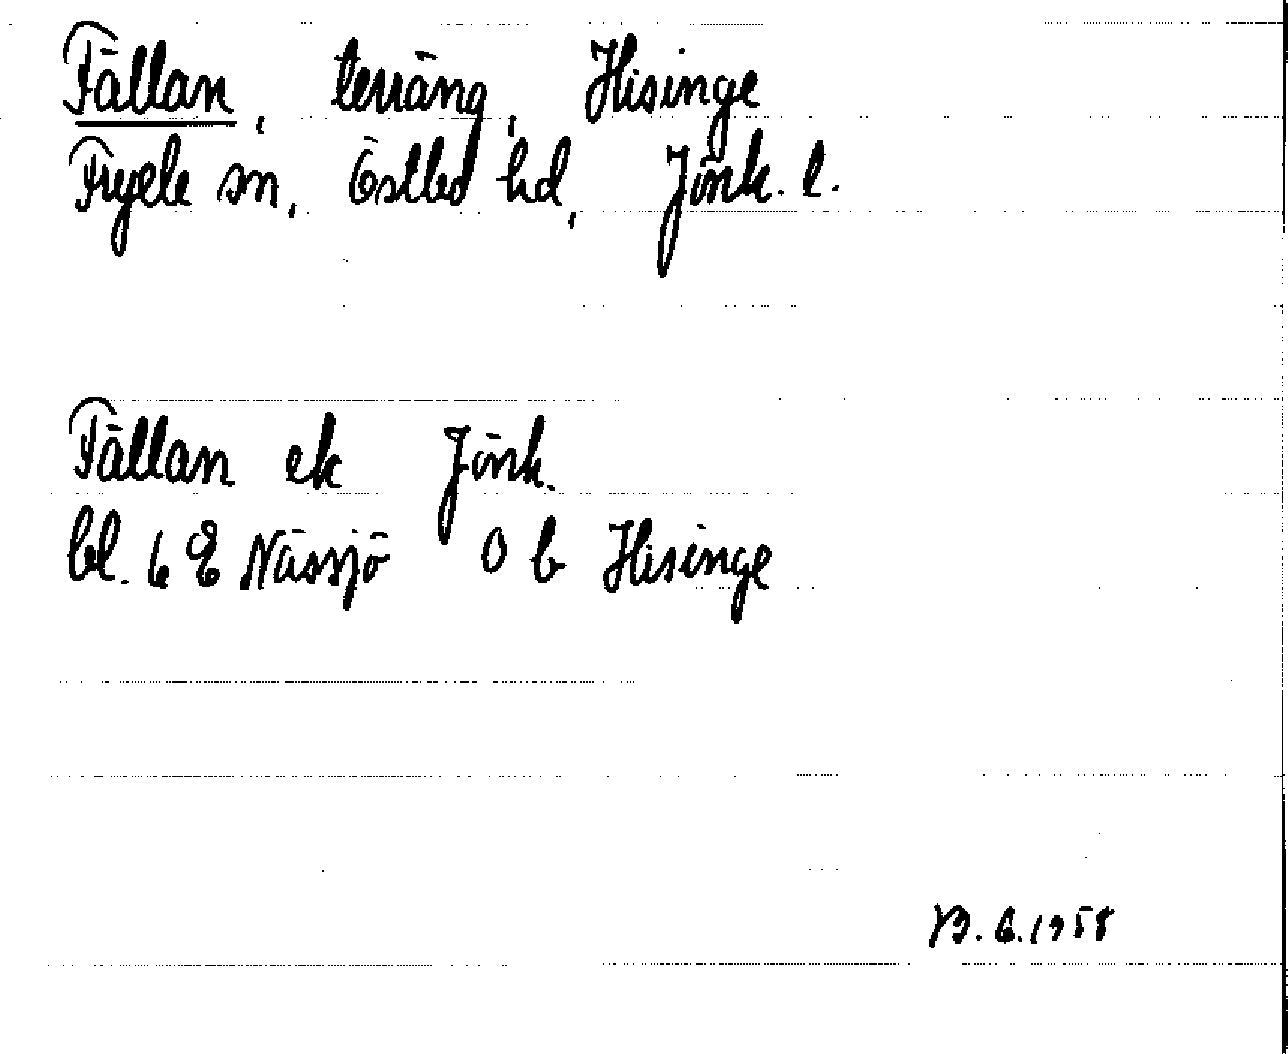 Fällan, terräng, Hisinge
Fryele sn, Östbo hd, Jönk. l.
Fällan ek Jönk.
bl. 6 E Nässjö O b Hisinge
B. G. 1958